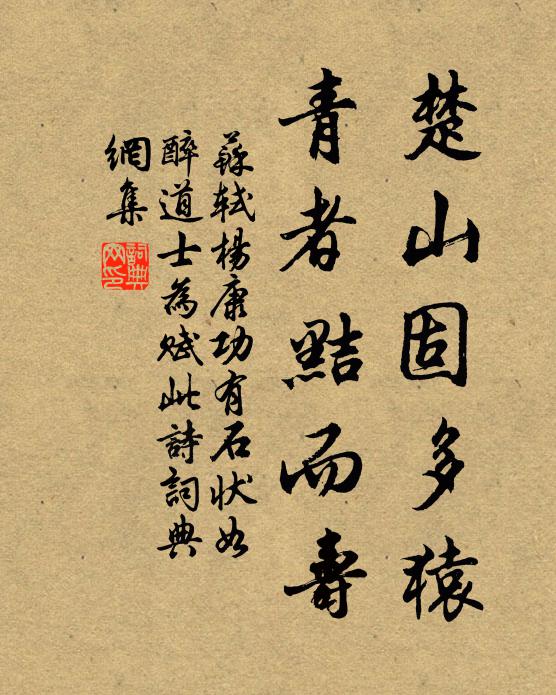 楚山固多猿
青者黠而壽
蘇軾楊康功有石狀如
醉道士為賦此詩詞典
網集
詞典
網印